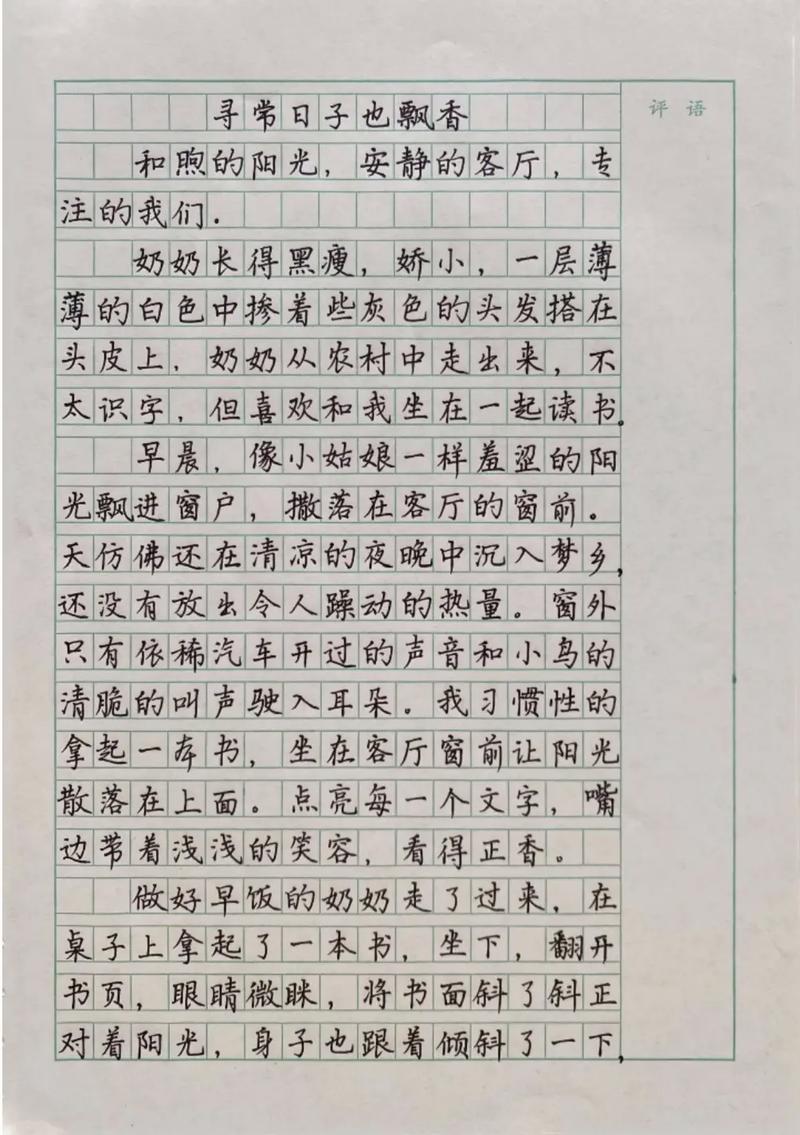 寻常日子也飘香
评语
和煦的阳光，安静的客厅，专
注的我们．
奶奶长得黑瘦，娇小，一层薄
薄的白色中掺着些灰色的头发搭在
头皮上．奶奶从农村中走出来，不
太识字，但喜欢和我坐在一起读书。
早晨，像小姑娘一样羞涩的阳
光飘进窗户，撒落在客厅的窗前。
天仿佛还在清凉的夜晚中沉入梦乡，
还没有放出令人躁动的热量。窗外
只有依稀汽车开过的声音和小鸟的
清脆的叫声驶入耳朵。我习惯性的
拿起一本书，坐在客厅窗前让阳光
散落在上面。点亮每一个文字，嘴
边带着浅浅的笑容，看得正香。
做好早饭的奶奶走了过来，在
桌子上拿起了一本书，坐下，翻开
书页，眼睛微眯，将书面斜了斜正
对着阳光，身子也跟着倾斜了一下，